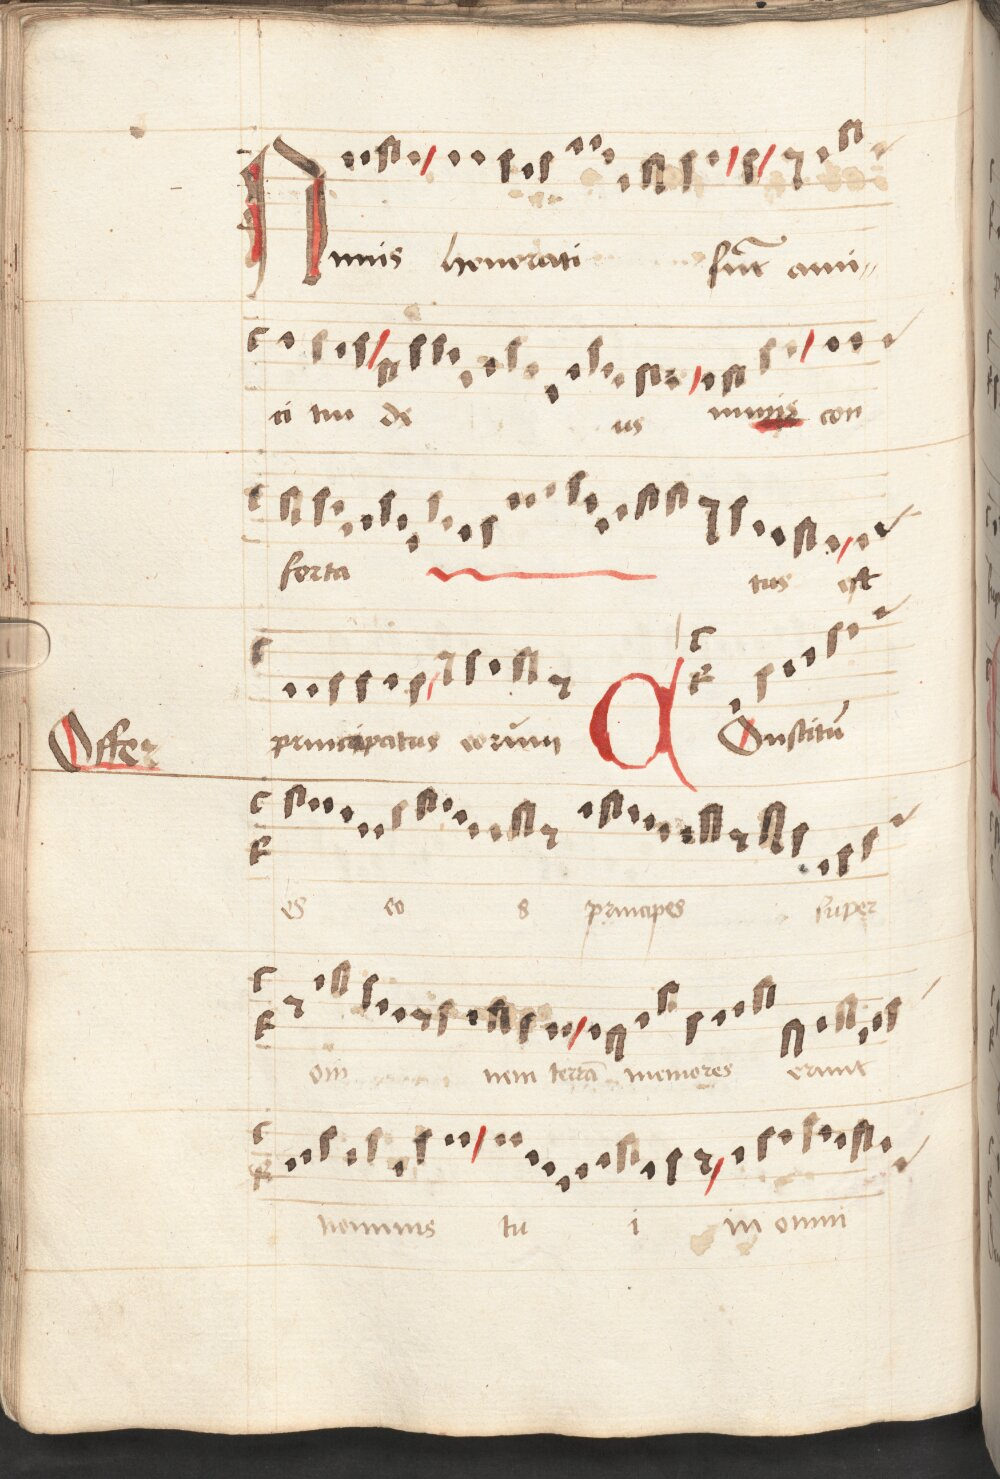 Nimis honorati sūt ami〃
ci tui de us nimis con
forta tus est
principatus eorum Constitu
Offer
es eo s principes super
om̄ nem terrā memores erunt
nominis tu i in omni